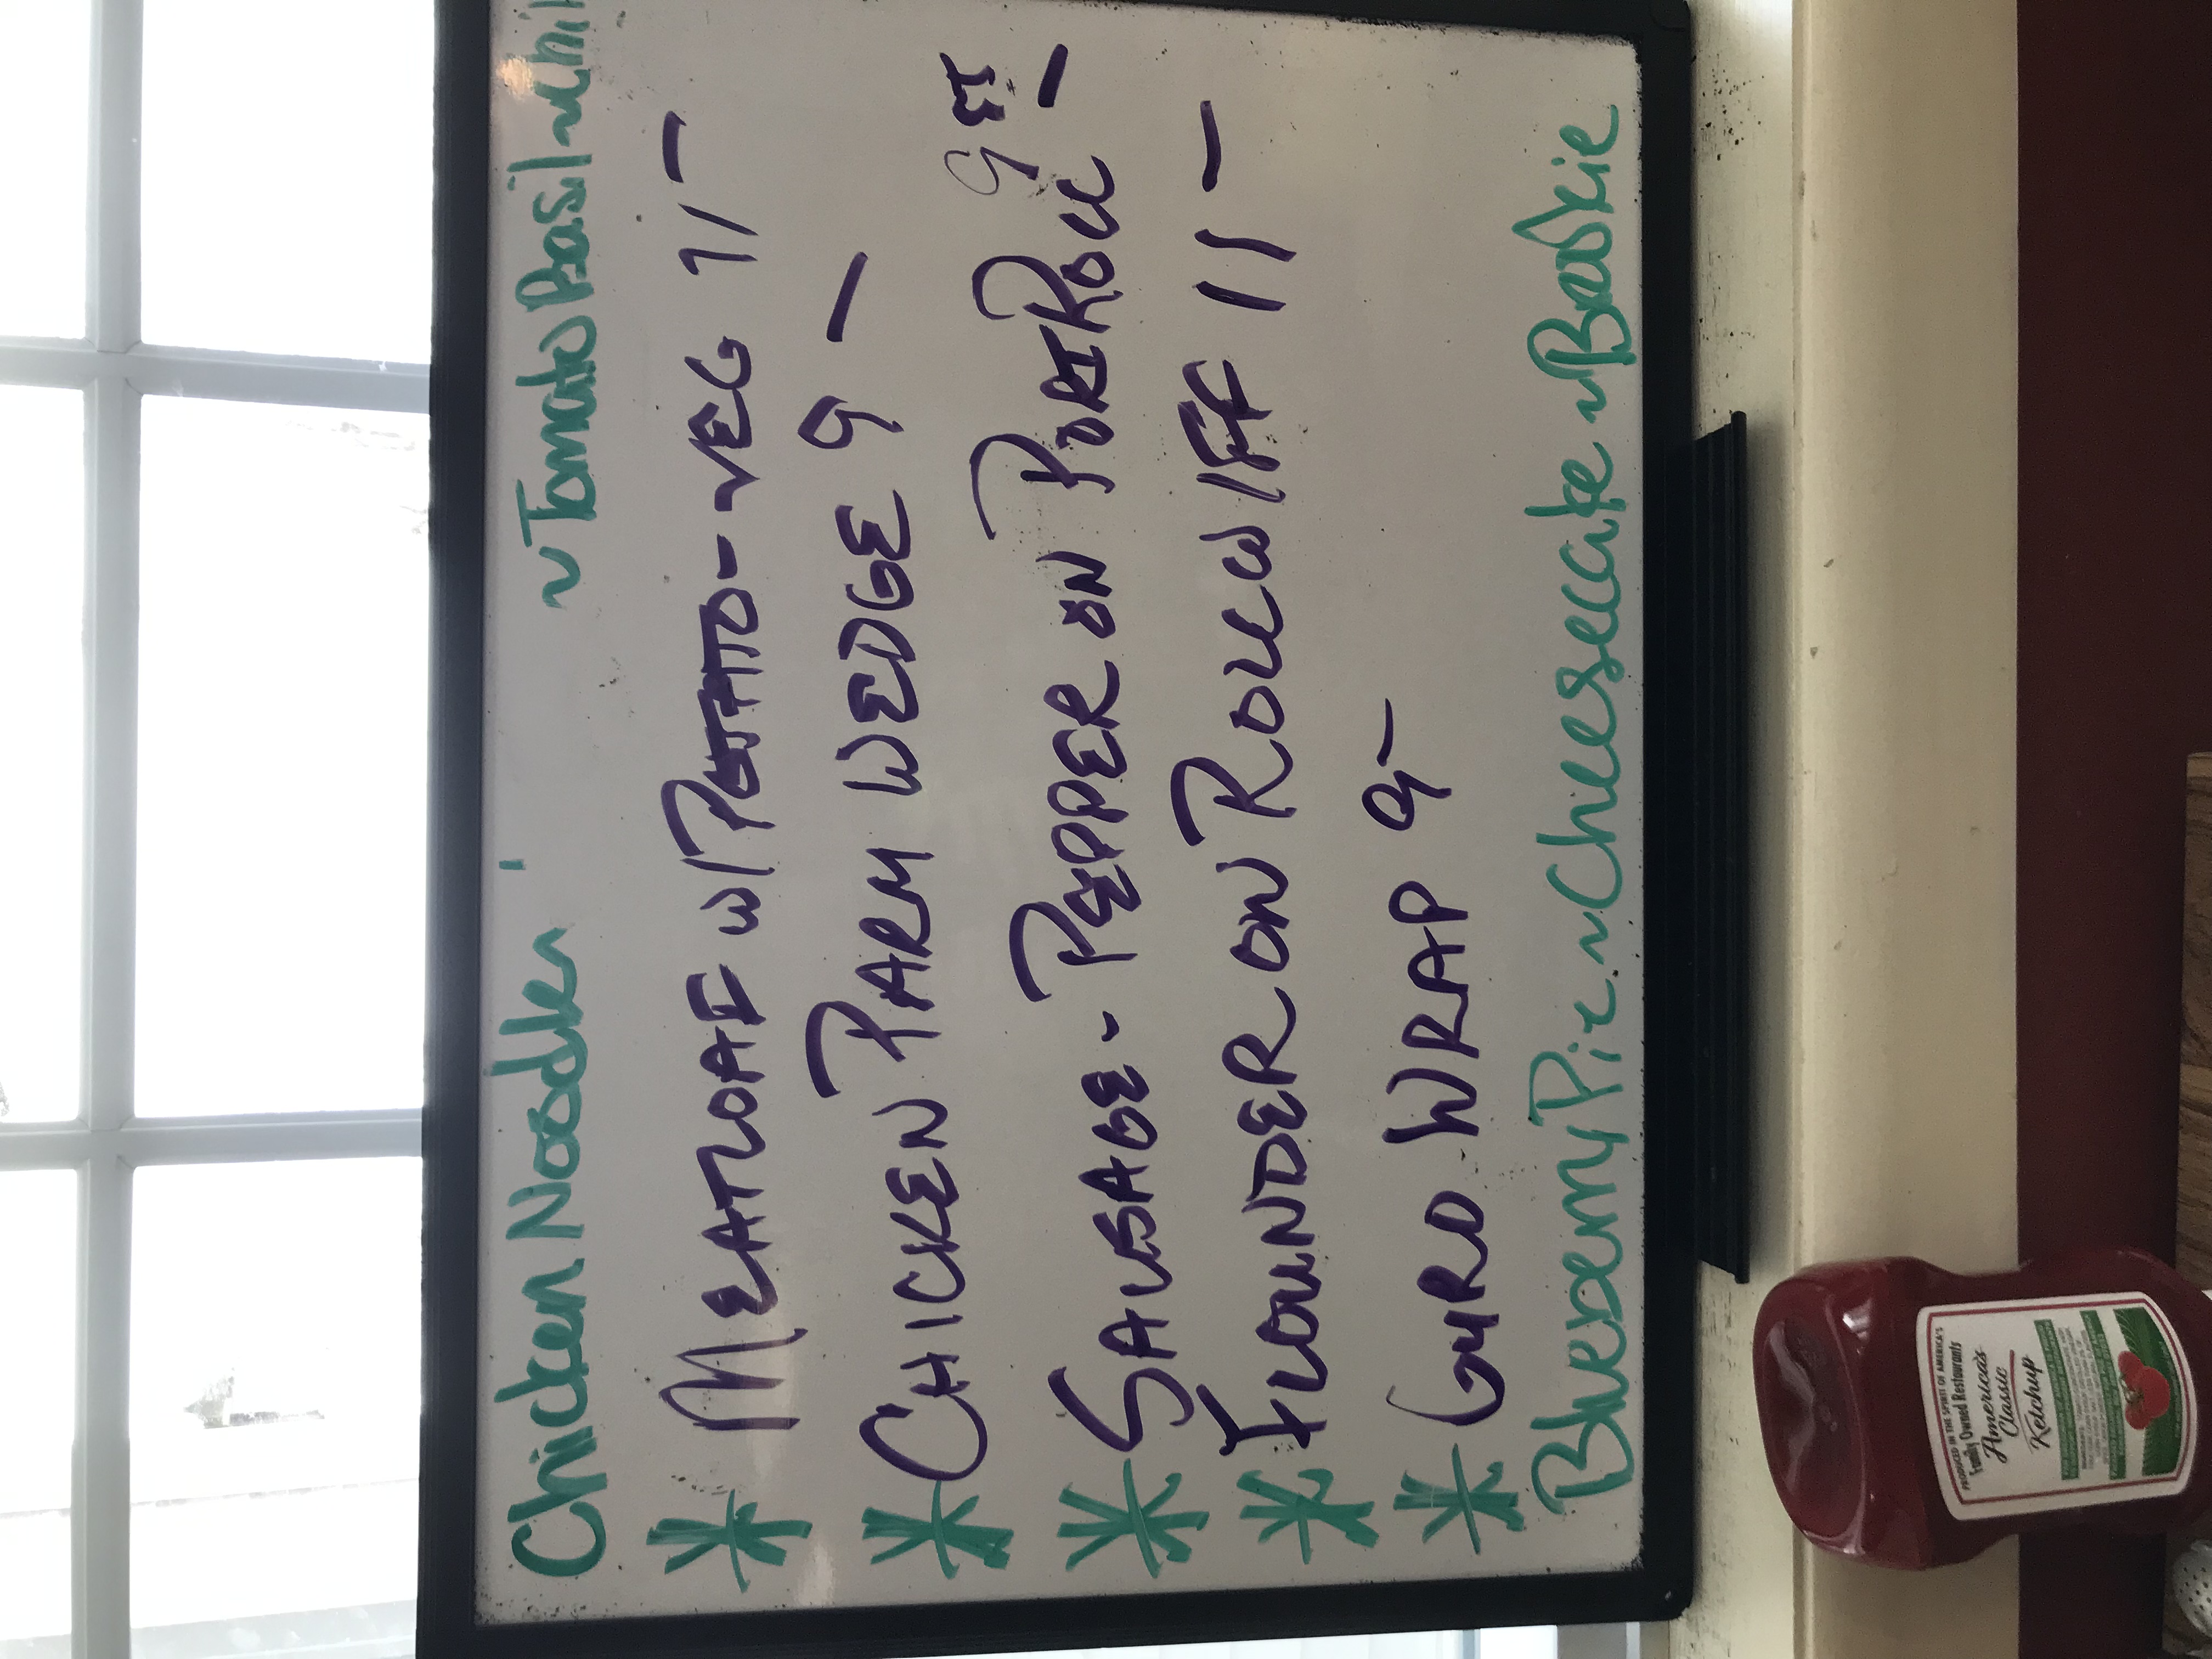 Chicken Noodle ~ Tomato Basil ~ Chil
* MEATLOAF W/ POTATO - VEG 11 -
* CHICKEN PARM WEDGE 9 -
* SAUSAGE - PEPPER ON PORT ROLL 9 -
* FLOUNDER ON ROLL W/FF 11 -
* GYRO WRAP 9 -
Blueberry Pie ~ Cheesecake ~ Bookie
PRODUCED IN THE SPIRIT OF AMERICA'S
Family Owned Restaurants
America's
Classic
Ketchup